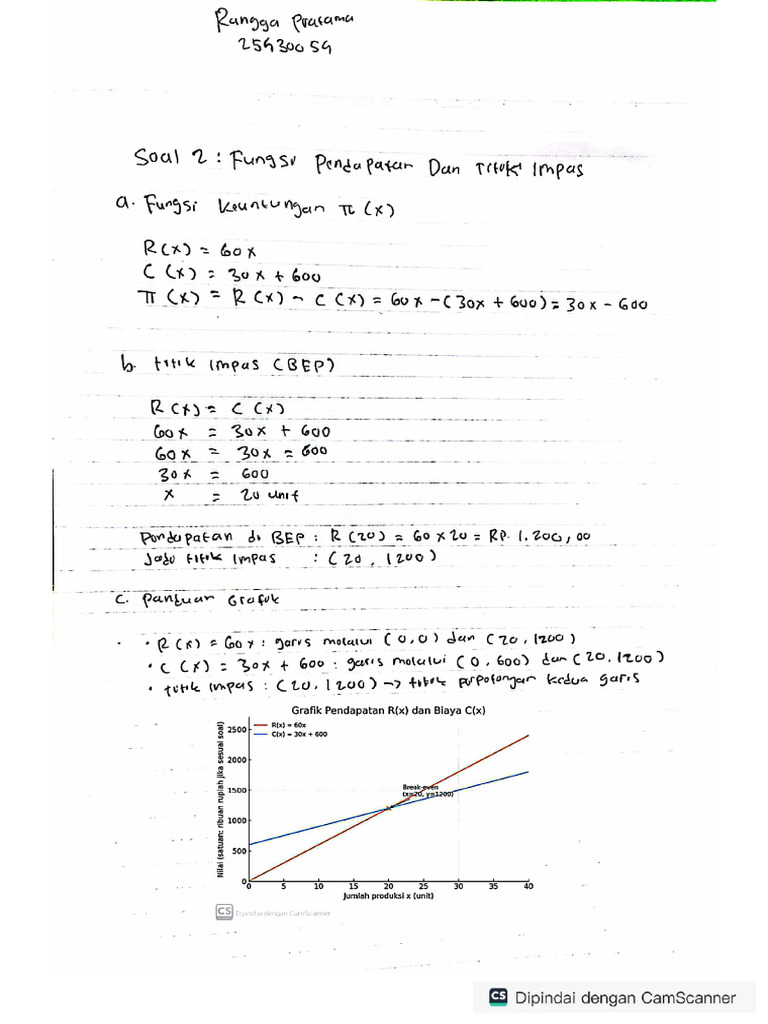 Rangga Pratama
25430059
Soal 2 : Fungsi Pendapatan Dan Titik Impas
a. Fungsi Keuntungan π (x)
R(x) = 60x
C (x) = 30x + 600
π (x) = R (x) - C (x) = 60x - (30x + 600) = 30x - 600
b. titik impas (BEP)
R (x) = C (x)
60x = 30x + 600
60x = 30x = 600
30x = 600
x = 20 unit
Pendapatan di BEP : R (20) = 60 x 20 = RP. 1.200,00
Jadi titik impas : (20, 1200)
c. Panduan Grafik
• R (x) = 60x : garis melalui (0,0) dan (20, 1200)
• C (x) = 30x + 600 : garis melalui (0, 600) dan (20, 1200)
• titik impas : (20, 1200) → titik perpotongan kedua garis
Grafik Pendapatan R(x) dan Biaya C(x)
R(x) = 60x
C(x) = 30x + 600
Nilai (satuan: ribuan rupiah jika sesuai soal)
2500
2000
1500
1000
500
0
Break-even
(x=20, y=1200)
0 5 10 15 20 25 30 35 40
Jumlah produksi x (unit)
CS Dipindai dengan CamScanner
CS Dipindai dengan CamScanner